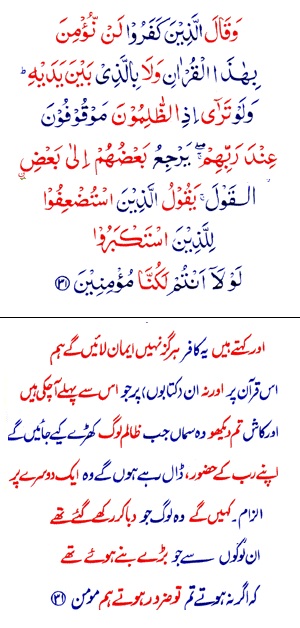 وَقَالَ الَّذِيْنَ كَفَرُوْا لَنْ نُّؤْمِنَ
بِهٰذَا الْقُرْاٰنِ وَلَا بِالَّذِيْ بَيْنَ يَدَيْهِ ؕ
وَلَوْ تَرٰۤى اِذِ الظّٰلِمُوْنَ مَوْقُوْفُوْنَ
عِنْدَ رَبِّهِمْ ۚۖ يَرْجِعُ بَعْضُهُمْ اِلٰى بَعْضِ
اۨلْقَوْلَ ۚ يَقُوْلُ الَّذِيْنَ اسْتُضْعِفُوْا
لِلَّذِيْنَ اسْتَكْبَرُوْا
لَوْلَاۤ اَنْتُمْ لَكُنَّا مُؤْمِنِيْنَ ﴿۳۱﴾
اور کہتے ہیں یہ کافر ہرگز نہیں ایمان لائیں گے ہم
اس قرآن پر اور نہ ان (کتابوں) پر جو اس سے پہلے آچکی ہیں
اور کاش تم دیکھو وہ سماں جب ظالم لوگ کھڑے کیے جائیں گے
اپنے رب کے حضور، ڈال رہے ہوں گے وہ ایک دوسرے پر
الزام۔ کہیں گے وہ لوگ جو دبا کر رکھے گئے تھے
ان لوگوں سے جو بڑے بنے ہوئے تھے
کہ اگر نہ ہوتے تم تو ضرور ہوتے ہم مومن ﴿۳۱﴾